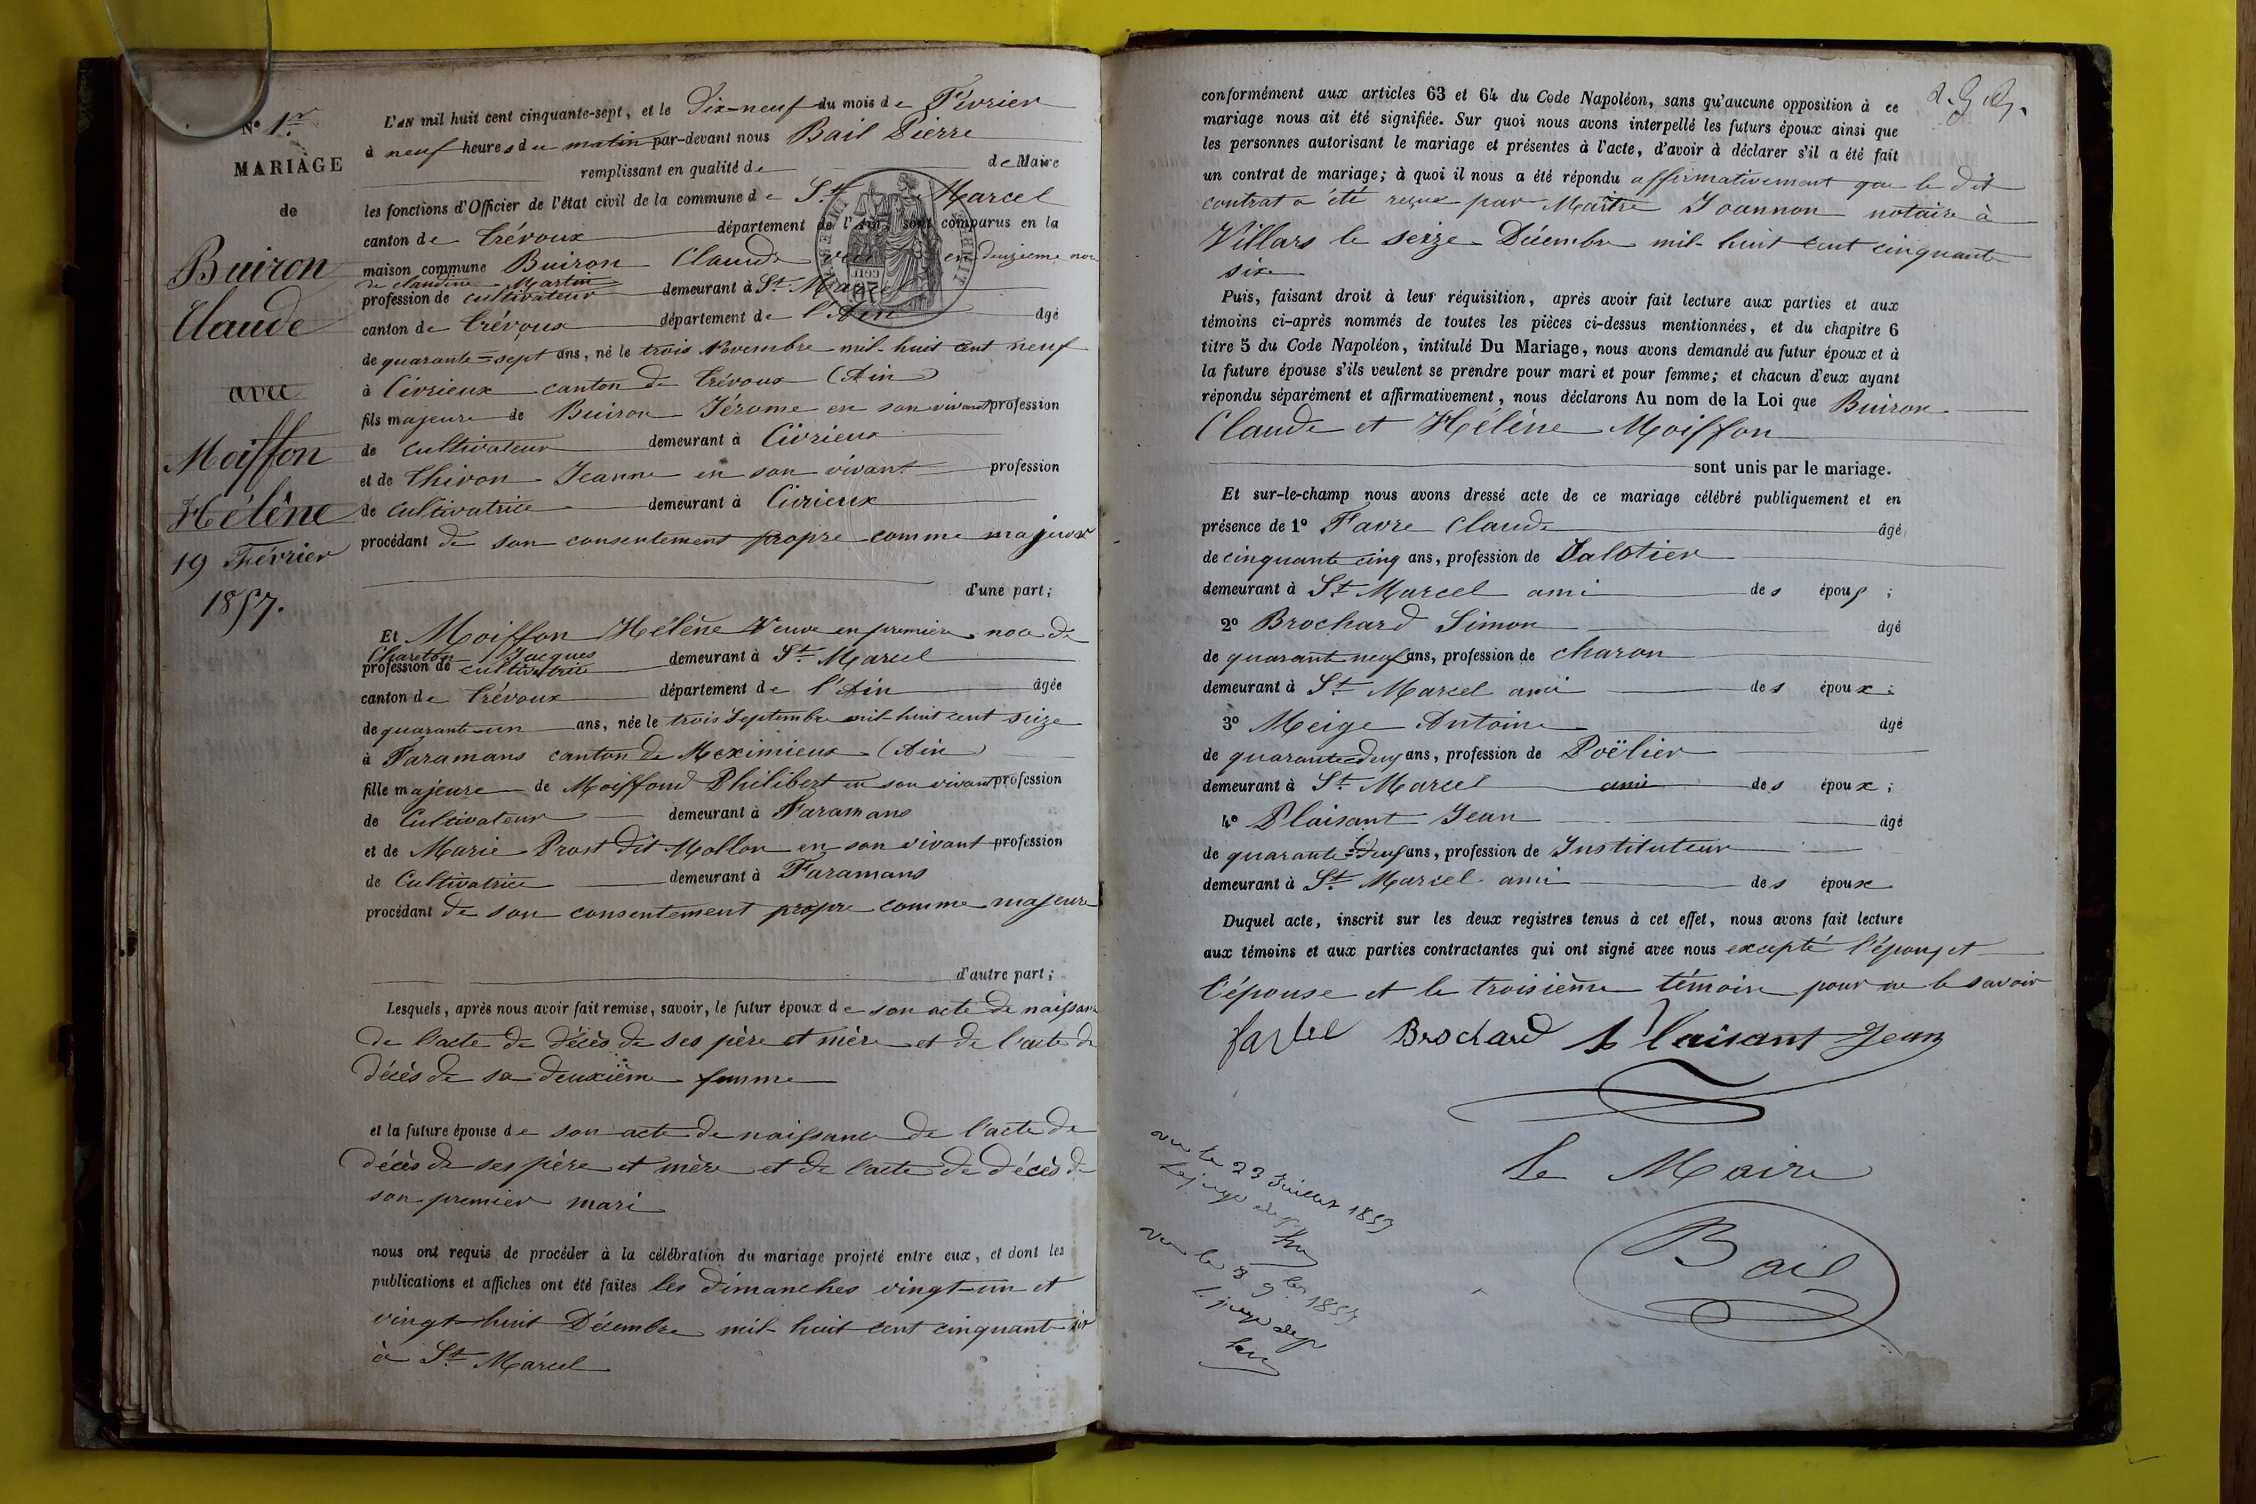 N° 1er
MARIAGE
de
Buiron
Claude
avec
Moiffon
Hélène
19 Février
1857.
L'an mil huit cent cinquante-sept, et le Dix-neuf du mois de Février
à neuf heures du matin par-devant nous Bail Pierre
remplissant en qualité de de Maire
les fonctions d'Officier de l'état civil de la commune de St Marcel
canton de Trévoux département de l'Ain sont comparus en la
maison commune Buiron Claude en deuzième noce
de claudine Martin
profession de cultivateur demeurant à St Marcel
canton de Trévoux département de l'Ain âgé
de quarante-sept ans, né le trois Novembre mil-huit cent neuf
à Civrieux canton de Trévoux (Ain)
fils majeure de Buiron Jérome en son vivant profession
de cultivateur demeurant à Civrieux
et de Thivon Jeanne en son vivant profession
de cultivatrice demeurant à Civrieux
procédant de son consentement propre comme majeur
d'une part;
Et Moiffon Hélène Veuve en première noce de
Chareton Jacques
profession de cultivatrice demeurant à St Marcel
canton de Trévoux département de l'Ain âgée
de quarante-un ans, née le trois Septembre mil-huit cent seize
à Faramans canton de Meximieux (Ain)
fille majeure de Moiffond Philibert en son vivant profession
de Cultivateur demeurant à Faramans
et de Marie Prost dit Mollon en son vivant profession
de Cultivatrice demeurant à Faramans
procédant de son consentement propre comme majeure
d'autre part;
Lesquels, après nous avoir fait remise, savoir, le futur époux de son acte de naissance
de l'acte de décès de ses père et mère et de l'acte de
décès de sa deuxième femme
et la future épouse de son acte de naissance de l'acte de
décès de ses père et mère et de l'acte de décès de
son premier mari
nous ont requis de procéder à la célébration du mariage projeté entre eux, et dont les
publications et affiches ont été faites les dimanches vingt-un et
vingt-huit Décembre mil-huit cent cinquante six
à St Marcel
conformément aux articles 63 et 64 du Code Napoléon, sans qu'aucune opposition à ce
mariage nous ait été signifiée. Sur quoi nous avons interpellé les futurs époux ainsi que
les personnes autorisant le mariage et présentes à l'acte, d'avoir à déclarer s'il a été fait
un contrat de mariage; à quoi il nous a été répondu affirmativement que le dit
contrat a été reçue par Maître Joannon notaire à
Villars le seize Décembre mil-huit cent cinquante
six
Puis, faisant droit à leur réquisition, après avoir fait lecture aux parties et aux
témoins ci-après nommés de toutes les pièces ci-dessus mentionnées, et du chapitre 6
titre 5 du Code Napoléon, intitulé Du Mariage, nous avons demandé au futur époux et à
la future épouse s'ils veulent se prendre pour mari et pour femme; et chacun d'eux ayant
répondu séparément et affirmativement, nous déclarons Au nom de la Loi que Buiron
Claude et Hélène Moiffon
sont unis par le mariage.
Et sur-le-champ nous avons dressé acte de ce mariage célébré publiquement et en
présence de 1° Favre Claude âgé
de cinquante cinq ans, profession de Salotier
demeurant à St Marcel ami des époux ;
2° Brochard Simon âgé
de quarante neuf ans, profession de charon
demeurant à St Marcel ami des époux ;
3° Meige Antoine âgé
de quarante deux ans, profession de Poëlier
demeurant à St Marcel ami des époux ;
4° Plaisant Jean âgé
de quarante-deux ans, profession de Instituteur
demeurant à St Marcel ami des époux
Duquel acte, inscrit sur les deux registres tenus à cet effet, nous avons fait lecture
aux témoins et aux parties contractantes qui ont signé avec nous excepté l'époux et
l'épouse et le troisième témoin pour ne le savoir
Brochard Plaisant Jean
Le Maire
Bail
vu le 23 Juillet 1857
vu le 8 9bre 1857